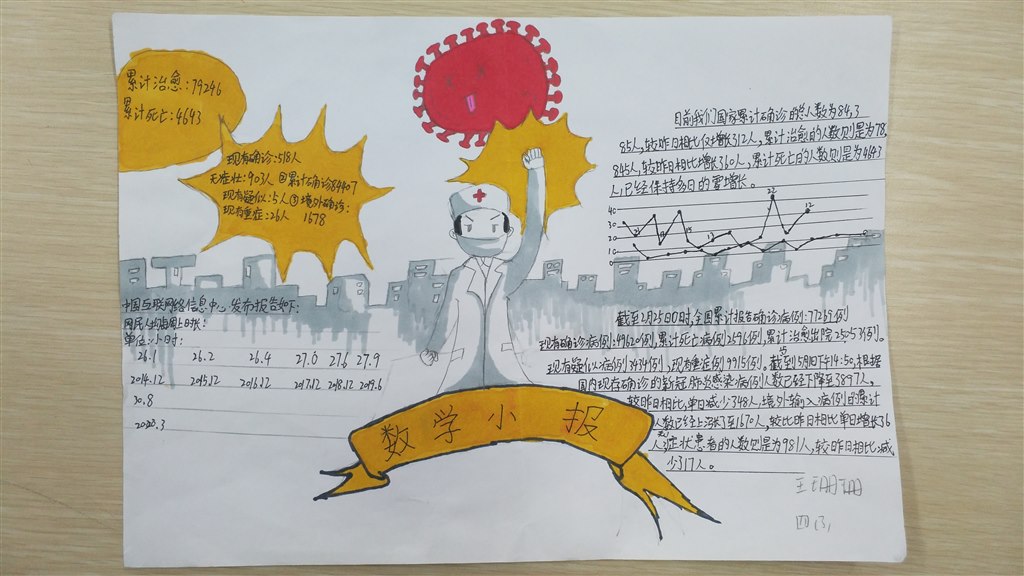 累计治愈:79246
累计死亡:4643
现有确诊:518人
无症壮:903人 ②累计确诊84407
现有疑似:5人③境外确诊:
现有重症:26人 1678
目前我们国家累计确诊的总人数为84,3
85人,较昨日相比仅增长312人,累计治愈的人数则是为78,
845人,较昨日相比增长310人,累计死亡的人数则是为4643
人,已经保持多日的零增长。
40
30
20
10
0
22
12
中国互联网络信息中心 发布报告如下:
网民人均每周上网时长:
单位:小时:
26.1 26.2 26.4 27.0 27.6 27.9
2014.12 2015.12 2016.12 2017.12 2018.12 2019.6
30.8
2020.3
截至2月25日0时,全国累计报告确诊病例:77262例
现有确诊病例:49620例,累计死亡病例2596例,累计治愈出院 25053例。
现有疑似病例:3434例,现有重症例9915例。截至5月8日下午14:50,根据
国内现存确诊的新冠肺炎感染病例人数已经下降至3897人,
较昨日相比,单日减少348人,境外输入病例的累计
人数已经上涨了至1670人,较比昨日相比单日增长36
人,症状患者的人数则是为981人,较昨日相比,减
少了17人。
数学小报